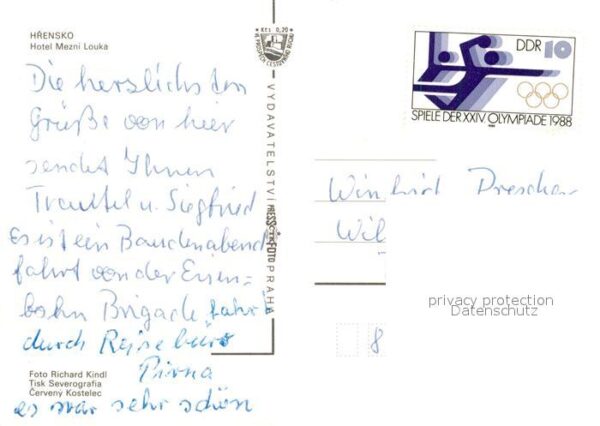 HŘENSKO
Hotel Mezní Louka
Die herzlichsten
Grüße von hier
sendet Ihnen
Trautel u. Siegfried
Es ist ein Baudenabend
fahrt von der Eisen-
bahn Brigade fahrt
durch Reisebüro
Pirna
es war sehr schön
Foto Richard Kindl
Tisk Severografia
Červený Kostelec
Kčs 0,20
VYDAVATELSTVÍ PRESSFOTO PRAHA
DDR 10
SPIELE DER XXIV. OLYMPIADE 1988
Drescher
Wil
8
privacy protection
Datenschutz